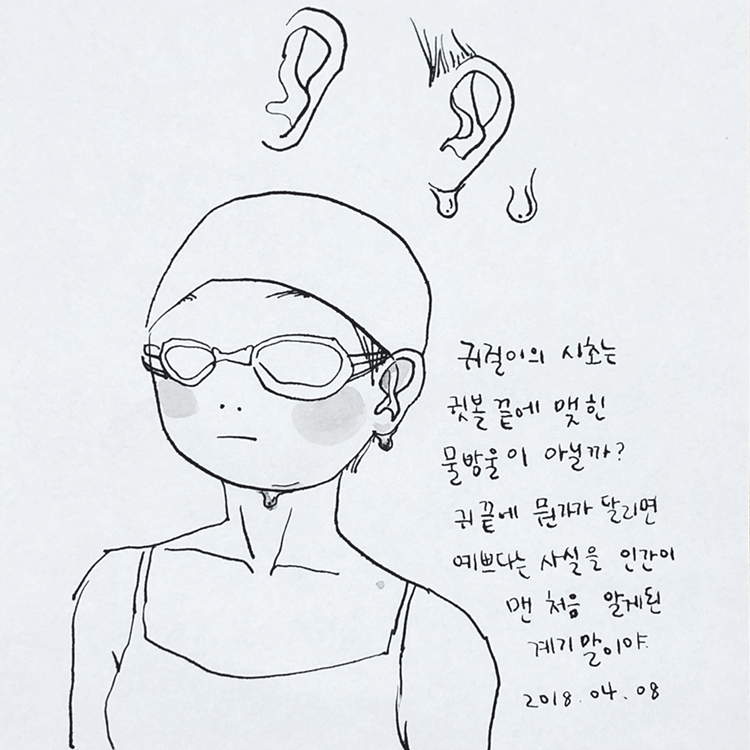 귀걸이의 시초는
귓볼 끝에 맺힌
물방울이 아닐까?
귀 끝에 뭔가가 달리면
예쁘다는 사실을 인간이
맨 처음 알게된
계기 말이야.
2018.04.08